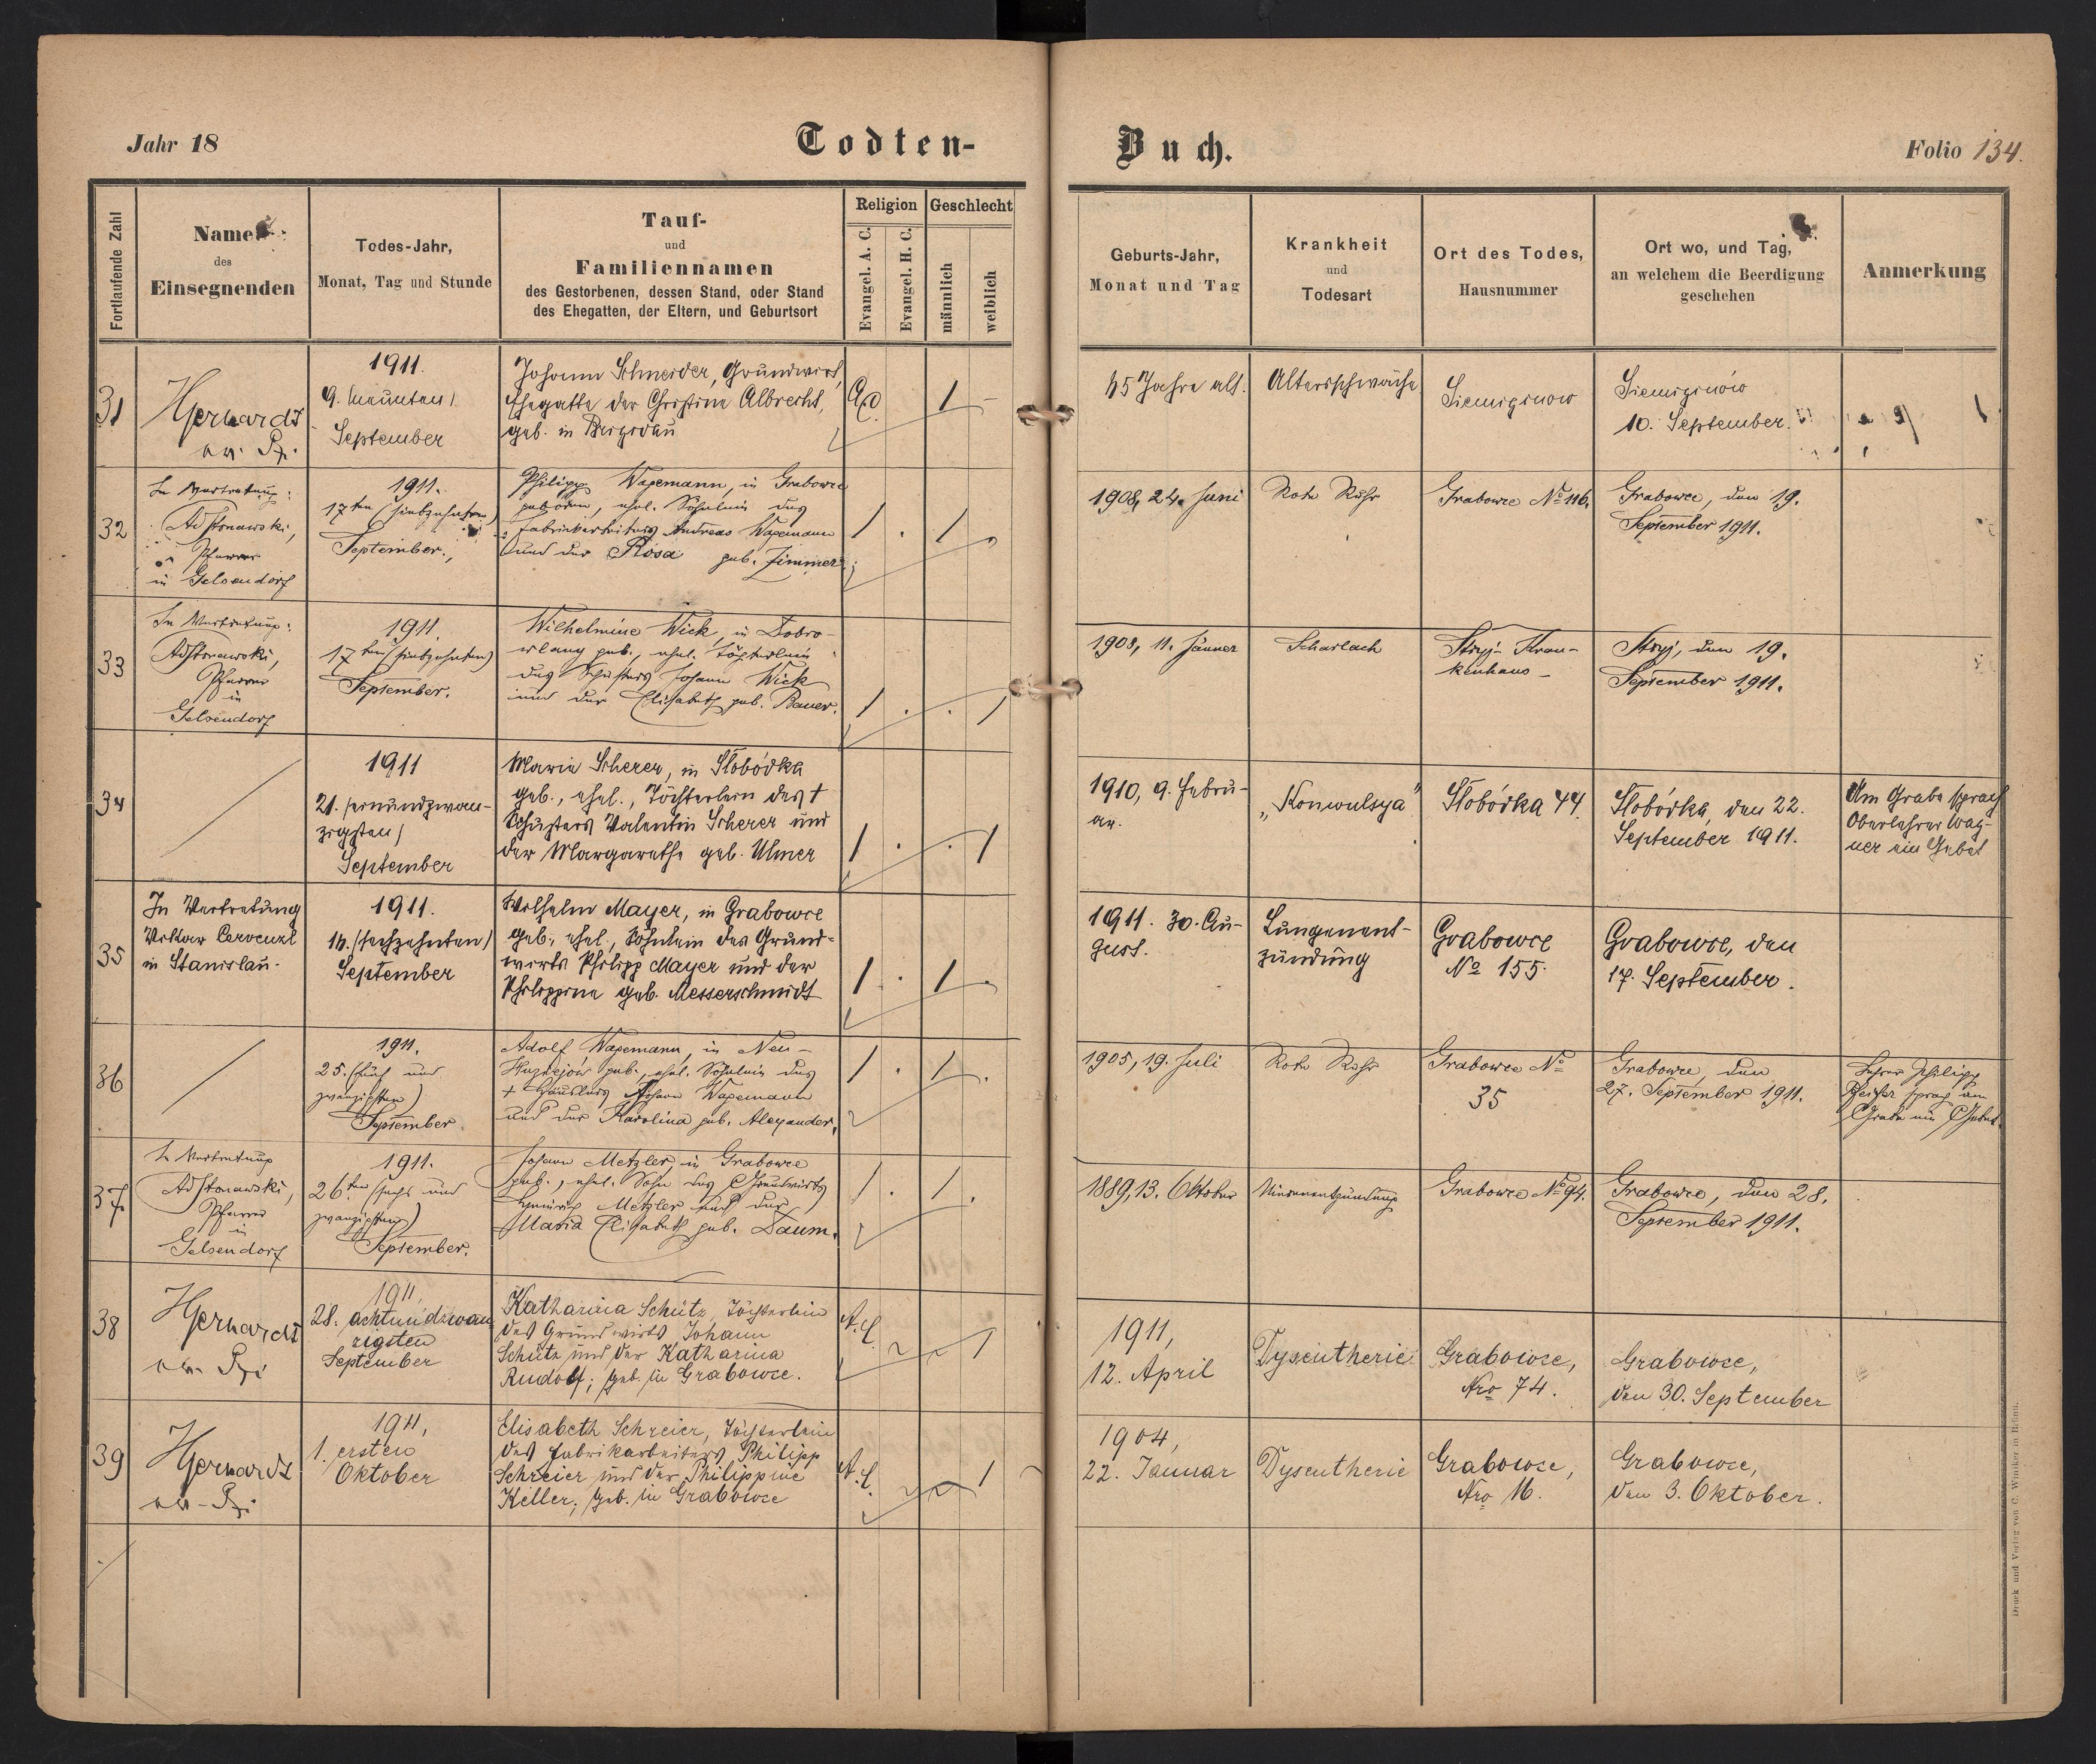 Jahr 18
Todten-
Buch.
Folio 134.
Fortlaufende Zahl
Name
des
Einsegnenden
Todes-Jahr,
Monat, Tag und Stunde
Tauf-
und
Familiennamen
des Gestorbenen, dessen Stand, oder Stand
des Ehegatten, der Eltern, und Geburtsort
Religion
Evangel. A. C.
Evangel. H. C.
Geschlecht
männlich
weiblich
Geburts-Jahr,
Monat und Tag
Krankheit
und
Todesart
Ort des Todes,
Hausnummer
Ort wo, und Tag,
an welchem die Beerdigung
geschehen
Anmerkung
31
Gerhardt
1911.
9. (neunten)
September
Johann Schneider, Grundwirt,
Ehegatte der Christine Albrecht,
geb. in
A.C.
1
Jahre alt.
Altersschwäche
Siemiginow
Siemiginów
10. September.
32
In Vertretung:
Ad Stonawski,
Pfarrer
in Gelsendorf
1911.
17ten (siebzehnten)
September.
Philipp Wagemann, in Grabowce
geboren, ehel. Söhnlein des
Fabrikarbeiters Andreas Wagemann
und der Rosa geb. Zimmer.
1 . 1 .
1908, 24. Juni
Rote Ruhr
Grabowce No 116.
Grabowce, den 19.
September 1911.
33
In Vertretung:
Ad Stonawski,
Pfarrer
in
Gelsendorf
1911.
17ten (siebzehnten)
September.
Wilhelmine Wick, in Dobro-
wlany geb., ehel. Töchterlein
des Schusters Johann Wick
und der Elisabeth geb. Bauer.
1 . . 1
1908, 11. Jänner
Scharlach
Stryj-Kran-
kenhaus
Stryj, den 19.
September 1911.
34
1911
21. (einundzwan-
zigsten)
September
Maria Scherer, in Słobódka
geb., ehel., Töchterlein des †
Schusters Valentin Scherer und
der Margarethe geb. Ulmer
1 . . 1
1910, 9. Febru-
ar.
„Konwulsya"
Słobódka 44.
Słobódka, den 22.
September 1911.
Am Grabe sprach
Oberlehrer Wag-
ner ein Gebet
35
In Vertretung
Vikar Cervenzl
in Stanislau.
1911.
16. (sechzehnten)
September
Wilhelm Mayer, in Grabowce
geb., ehel., Söhnlein des Grund-
wirts Philipp Mayer und der
Philippine geb. Messerschmidt
1 . 1 .
1911. 30. Au-
gust.
Lungenent-
zündung
Grabowce
No 155.
Grabowce, den
17. September.
36
1911.
25. (fünf und
zwanzigsten)
September
Adolf Wagemann, in Neu-
geb., ehel. Söhnlein des
† Häuslers Johann Wagemann
und der Karolina geb. Alexander.
1 . 1 .
1905, 19. Juli
Rote Ruhr
Grabowce No
35
Grabowce, den
27. September 1911.
Lehrer Philipp
Pfeifer sprach am
Grabe ein Gebet.
37
In Vertretung
Ad Stonawski,
Pfarrer
in
Gelsendorf
1911.
26ten (sechs und
zwanzigsten)
September.
Johann Metzler, in Grabowce
geb., ehel. Sohn des Grundwirts
Heinrich Metzler und der
Maria Elisabeth geb. Daum.
1 . 1 .
1889, 13. Oktober
Nierenentzündung
Grabowce No 94.
Grabowce, den 28.
September 1911.
38
Gerhardt
1911.
28. achtundzwan
zigsten
September
Katharina Schütz, Töchterlein
des Grundwirts Johann
Schütz und der Katharina
Rudolf; geb. in Grabowce.
A.C.
1
1911,
12. April
Dysentherie
Grabowce,
Nro 74.
Grabowce,
den 30. September
39
Gerhardt
1911,
1. ersten
Oktober
Elisabeth Schreier, Töchterlein
des Fabrikarbeiters Philipp
Schreier und der Philippine
Keller; geb. in Grabowce
A.C.
1
1904,
22. Januar
Dysentherie
Grabowce,
Nro 16.
Grabowce,
den 3. Oktober.
Druck und Verlag von C. Winiker in Brünn.